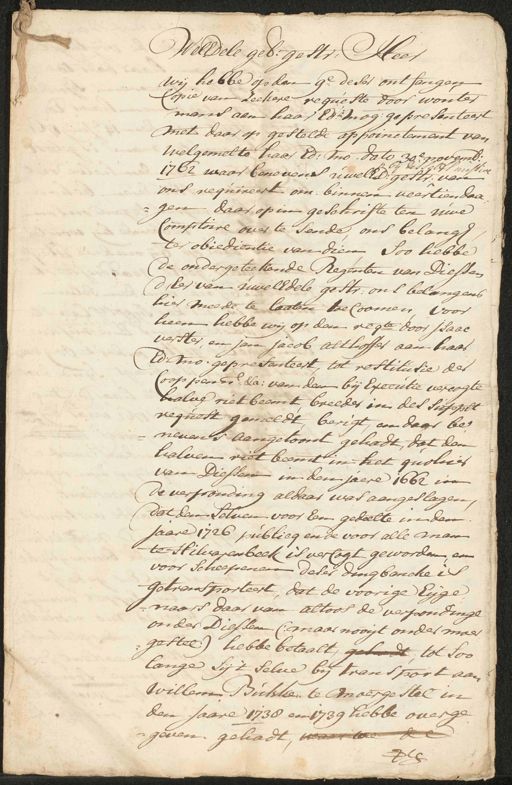 WelEdele ged: gestr: Heer
wij hebbe op den 9e deser ontfangen
Copie van seekere requeste door
mans aen haar Ed: mog: gepresenteert
met daar op gestelde appoinctement van
welgemelte haer Ed: mo: dato 30e novemb:
1762 waar benevens uwelEd: gestr: van
ons requireert om binnen veertien daa
gen daar op in geschrifte ten uwe
Comptoire over te sende ons belang,
ter obiedientie van dien Soo hebbe
de ondergeteekende Regenten van Diessen
dese van uwelEdele gestr: ons belangens
hier mede te laaten toecoomen, voor
heen hebbe wij op den reqte door Isaac
verster, en Jan Jacob althoffer aen haar
Ed: mo: gepresenteert, tot restitutie der
Cooppen: &: da: van den bij Executie vercogte
halve riet beemt breeder in des Suppt
request gemeldt berigt, en daar be
nevens aangetoont gehadt, dat den
halven riet beemt in het quohier
van Diessen in den jaere 1662 in
de verponding aldaar was aangeslagen,
dat den selven voor Een gedeelte in den
jaare 1726 publicq en de voor alle man
te Hilvarenbeek is vercogt geworden, en
voor Scheepenen deser dingbancke is
getransporteert, dat de voorige Eijge
naars daar van altoos de verpondinge
onder Diessen (maar nooijt onder moer
gestel) hebbe betaalt, gehadt, tot Soo
lange Sijt selve bij transport aan
Willem te moergestel in
den Jaare 1738 en 1739 hebbe overge
geven gehadt, waar toe de